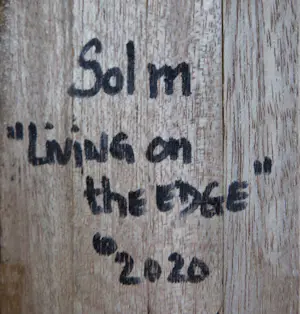 Solm
"LiviNG on
thE EDGE"
©2020